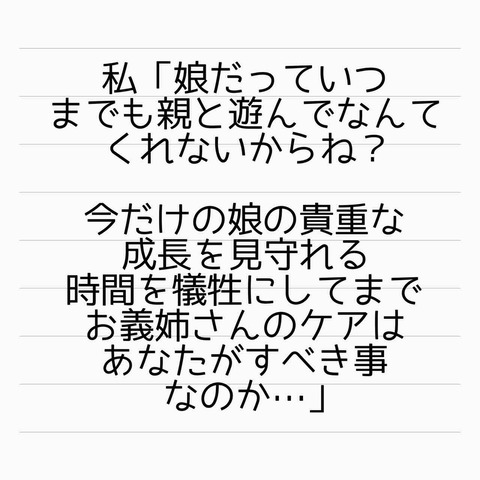 私「娘だっていつ
までも親と遊んでなんて
くれないからね？
今だけの娘の貴重な
成長を見守れる
時間を犠牲にしてまで
お義姉さんのケアは
あなたがすべき事
なのか…」